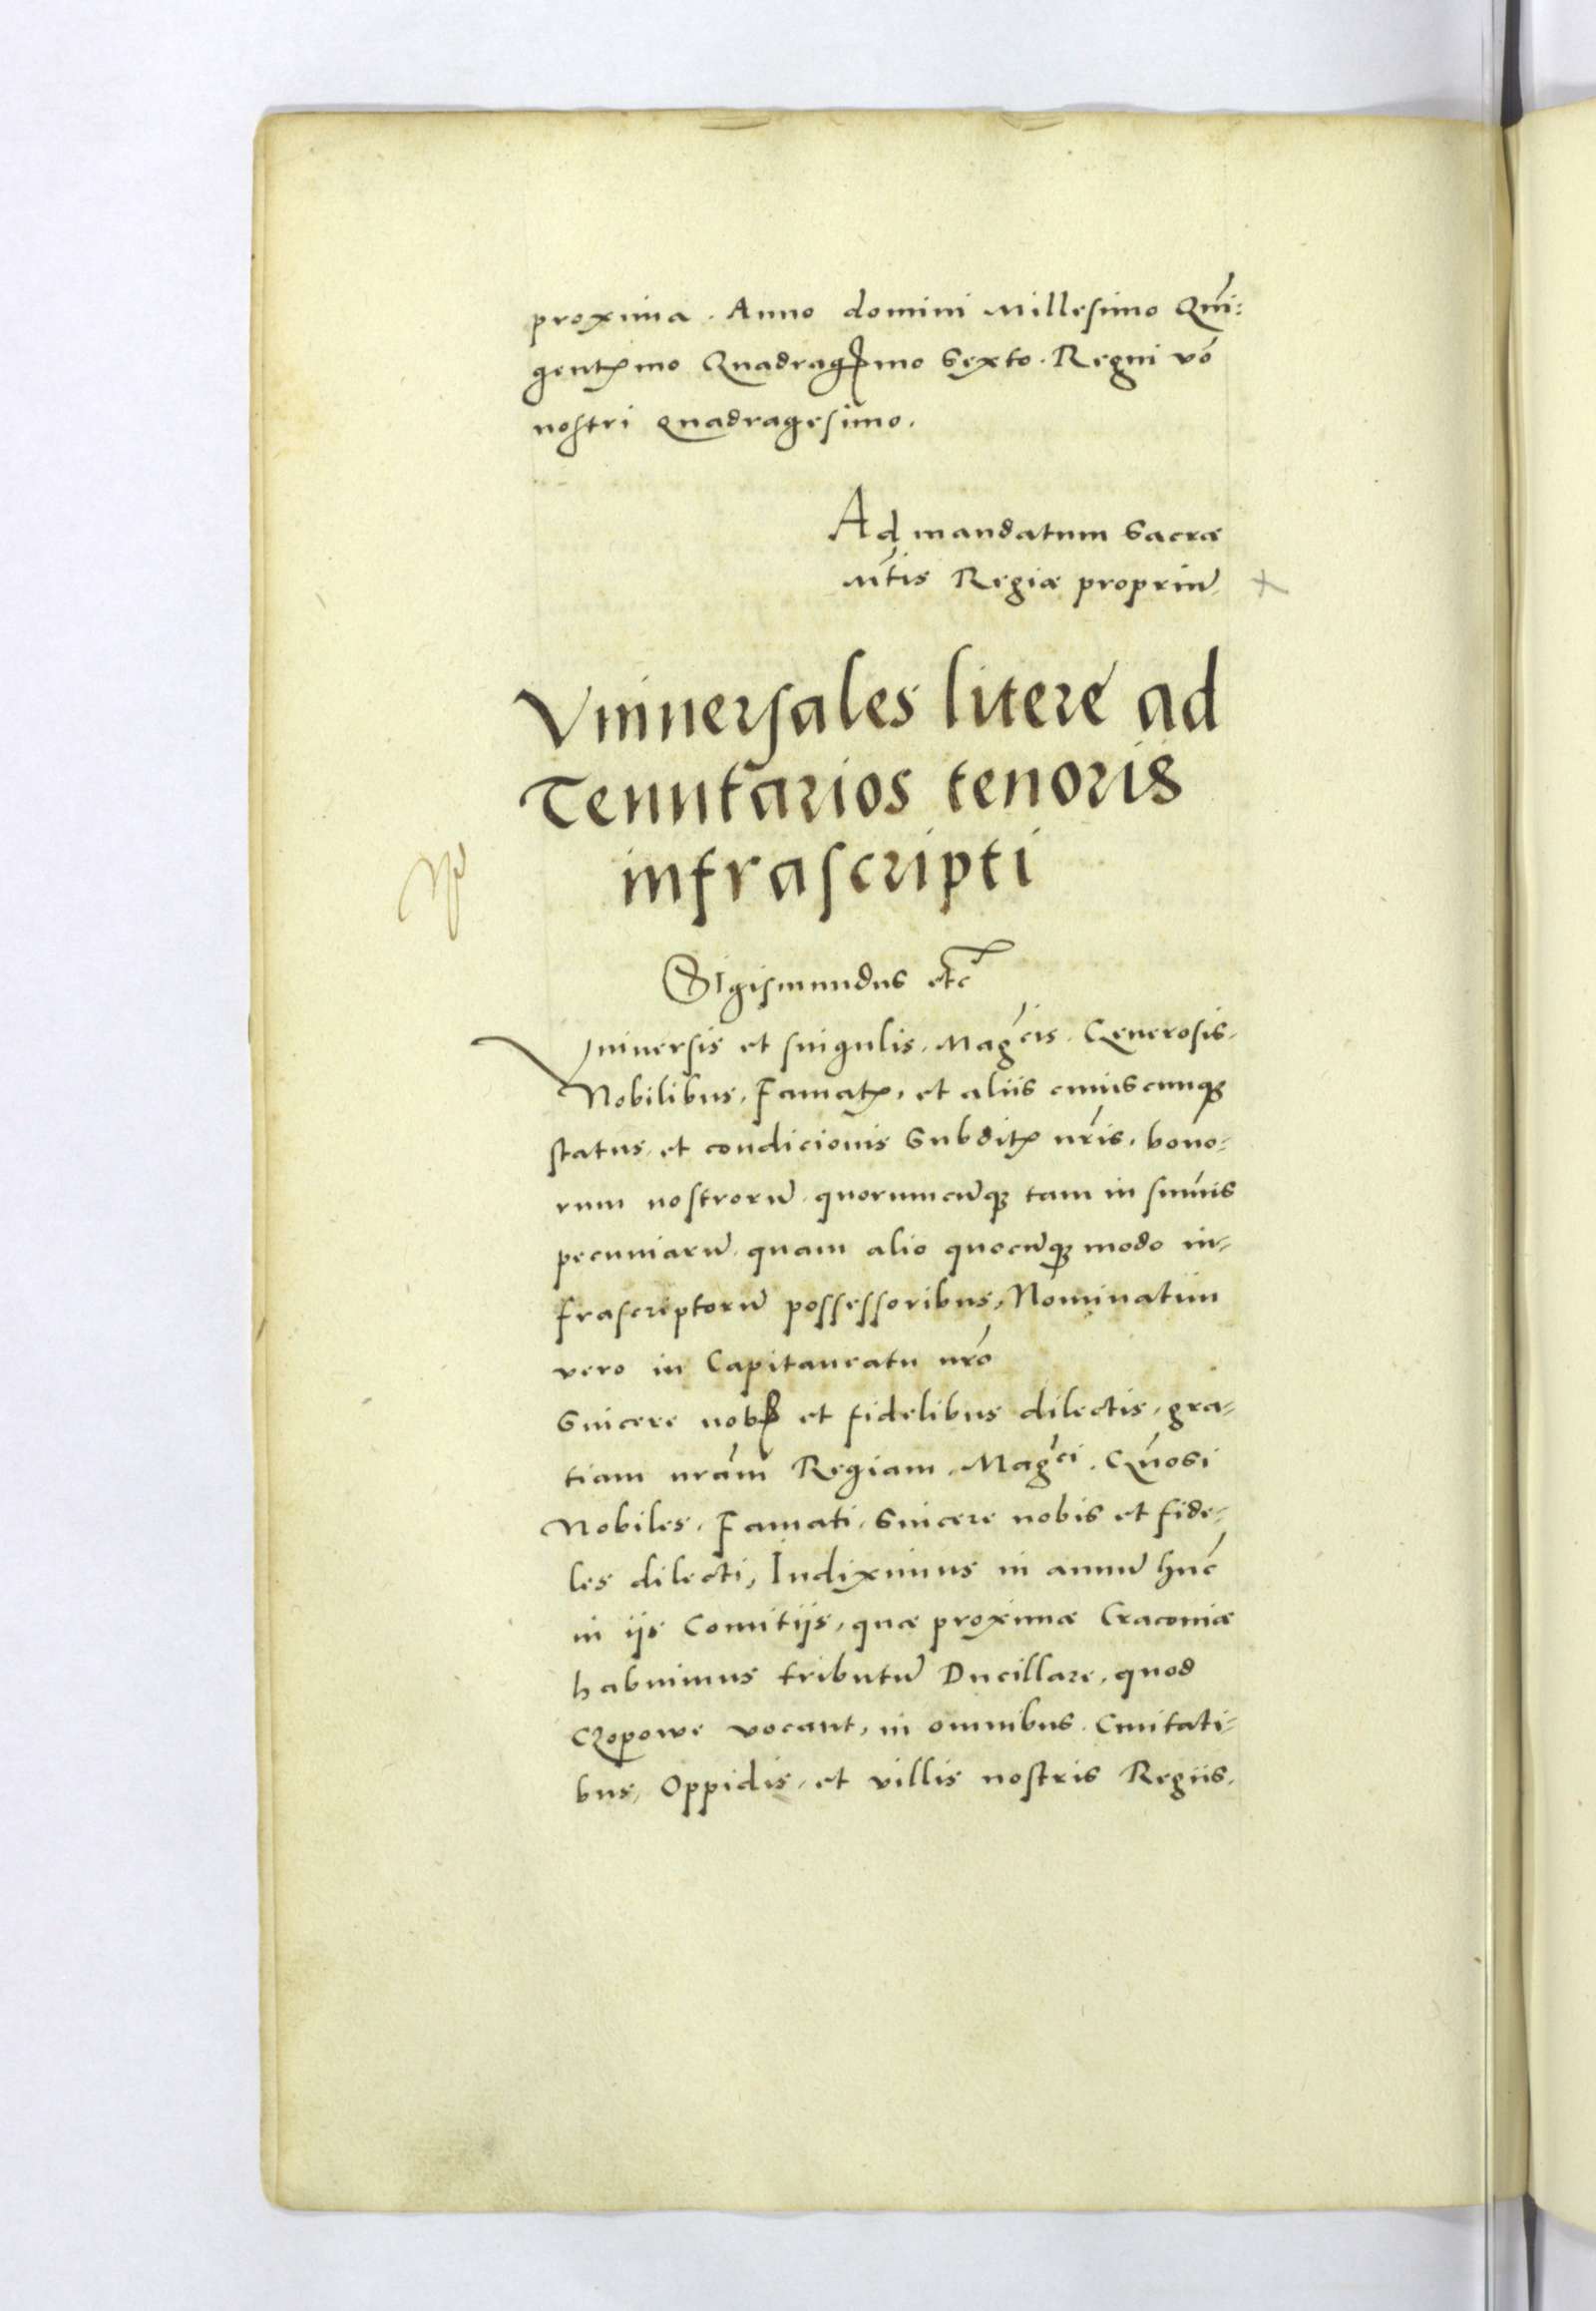 proxima. Anno domini Millesimo Qui̅:
gentꝭmo Quadragꝭmo Sexto. Regni vo̅
nostri Quadragesimo.
Ad mandatum Sacræ
Mt̅is Regiæ propriu̅
Vniuersales litere ad
Tenutarios tenoris
infrascripti
Sigismundus etc̅
Vniuersis et singulis. Magcis. Generosis.
Nobilibus, Famatꝭ, et aliis cuiuscunqꝫ
status, et condicionis Subditꝭ nr̅is, bono-
rum nostroru̅ quorumcu̅qꝫ tam in sum̅is
pecuniaru̅ quam alio quocu̅qꝫ modo in-
frascriptoru̅ possessoribus, Nominatim
vero in Capitaneatu nr̅o
Sincere nobꝭ et fidelibus dilectis, gra-
tiam nr̅am Regiam. Magci. Gn̅osi
Nobiles, Famati, Sincere nobis et fide-
les dilecti, Indiximus in annu̅ hunc̅
in ijs Comitijs, quæ proximæ Cracouiæ
habuimus tributu̅ Ducillare, quod
Czopowe vocant, in omnibus Ciuitati-
bus, Oppidis, et villis nostris Regiis.